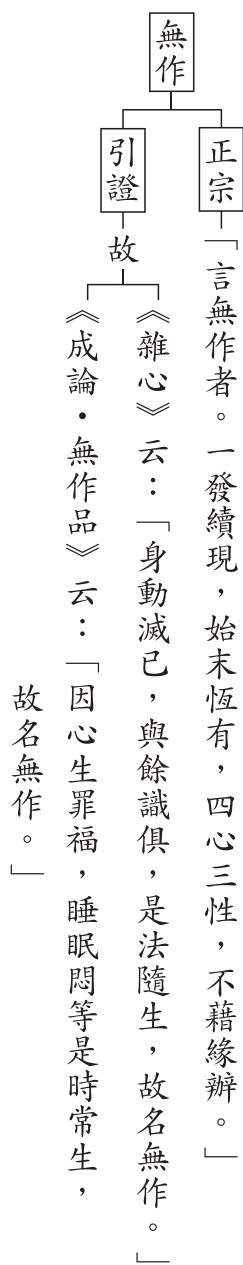 無作
正宗
「言無作者。一發續現，始末恆有，四心三性，不藉緣辦。」
引證
故
《雜心》云：「身動滅已，與餘識俱，是法隨生，故名無作。」
《成論·無作品》云：「因心生罪福，睡眠悶等是時常生，
故名無作。」